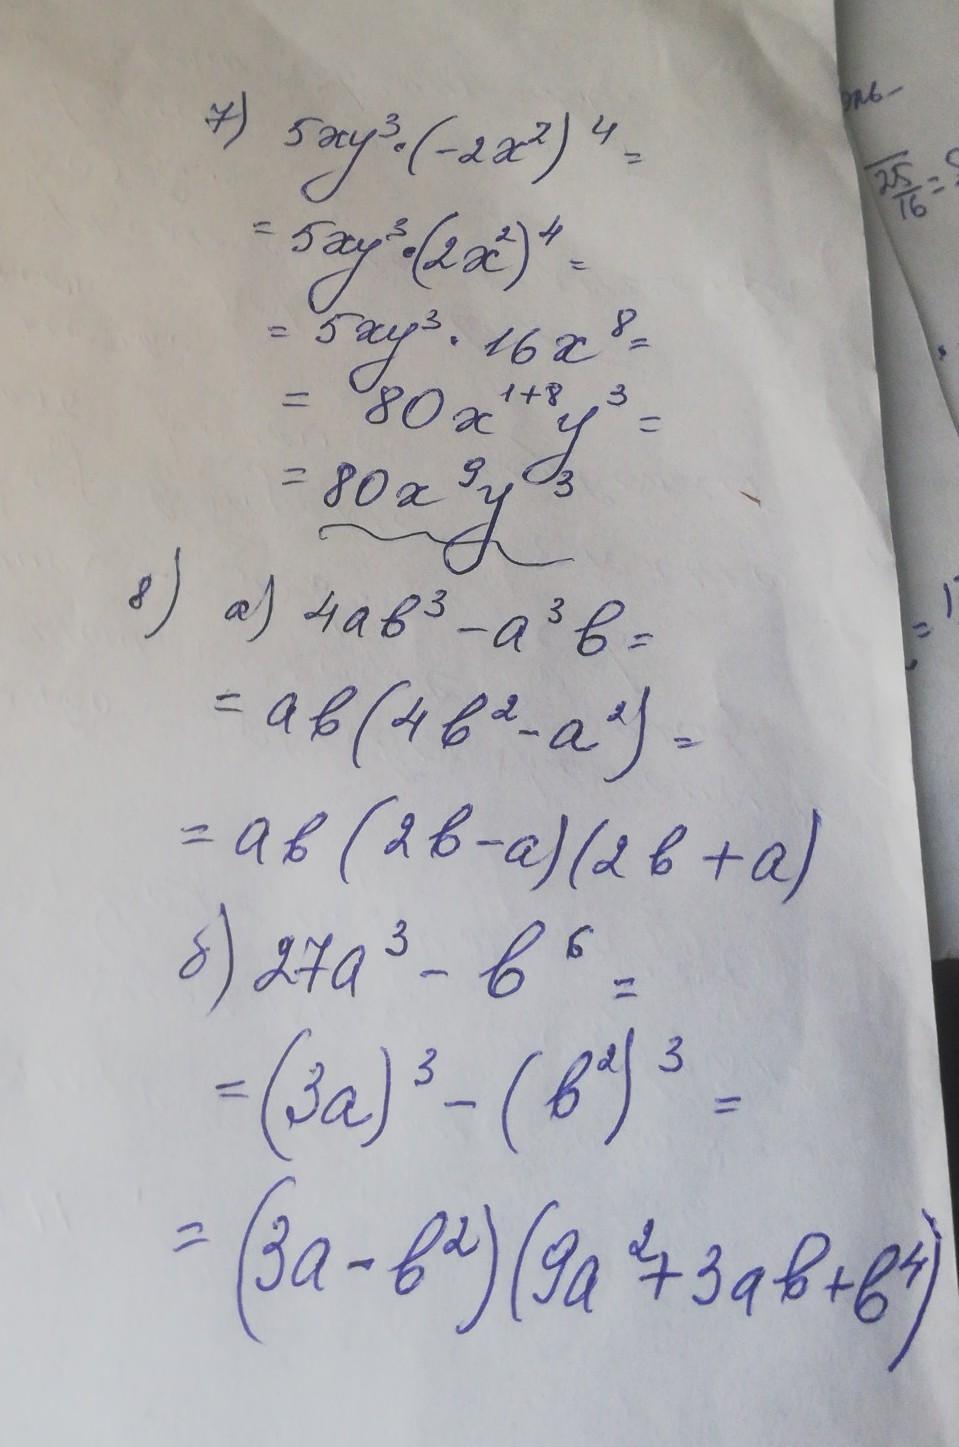 7) 5xy³·(-2x²)⁴=
=5xy³·(2x²)⁴=
=5xy³·16x⁸=
= 80x¹⁺⁸y³=
=80x⁹y³
8) а) 4ab³-a³b=
=ab(4b²-a²)=
=ab(2b-a)(2b+a)
б) 27a³-b⁶=
=(3a)³-(b²)³=
=(3a-b²)(9a²+3ab+b⁴)
25/16=
=